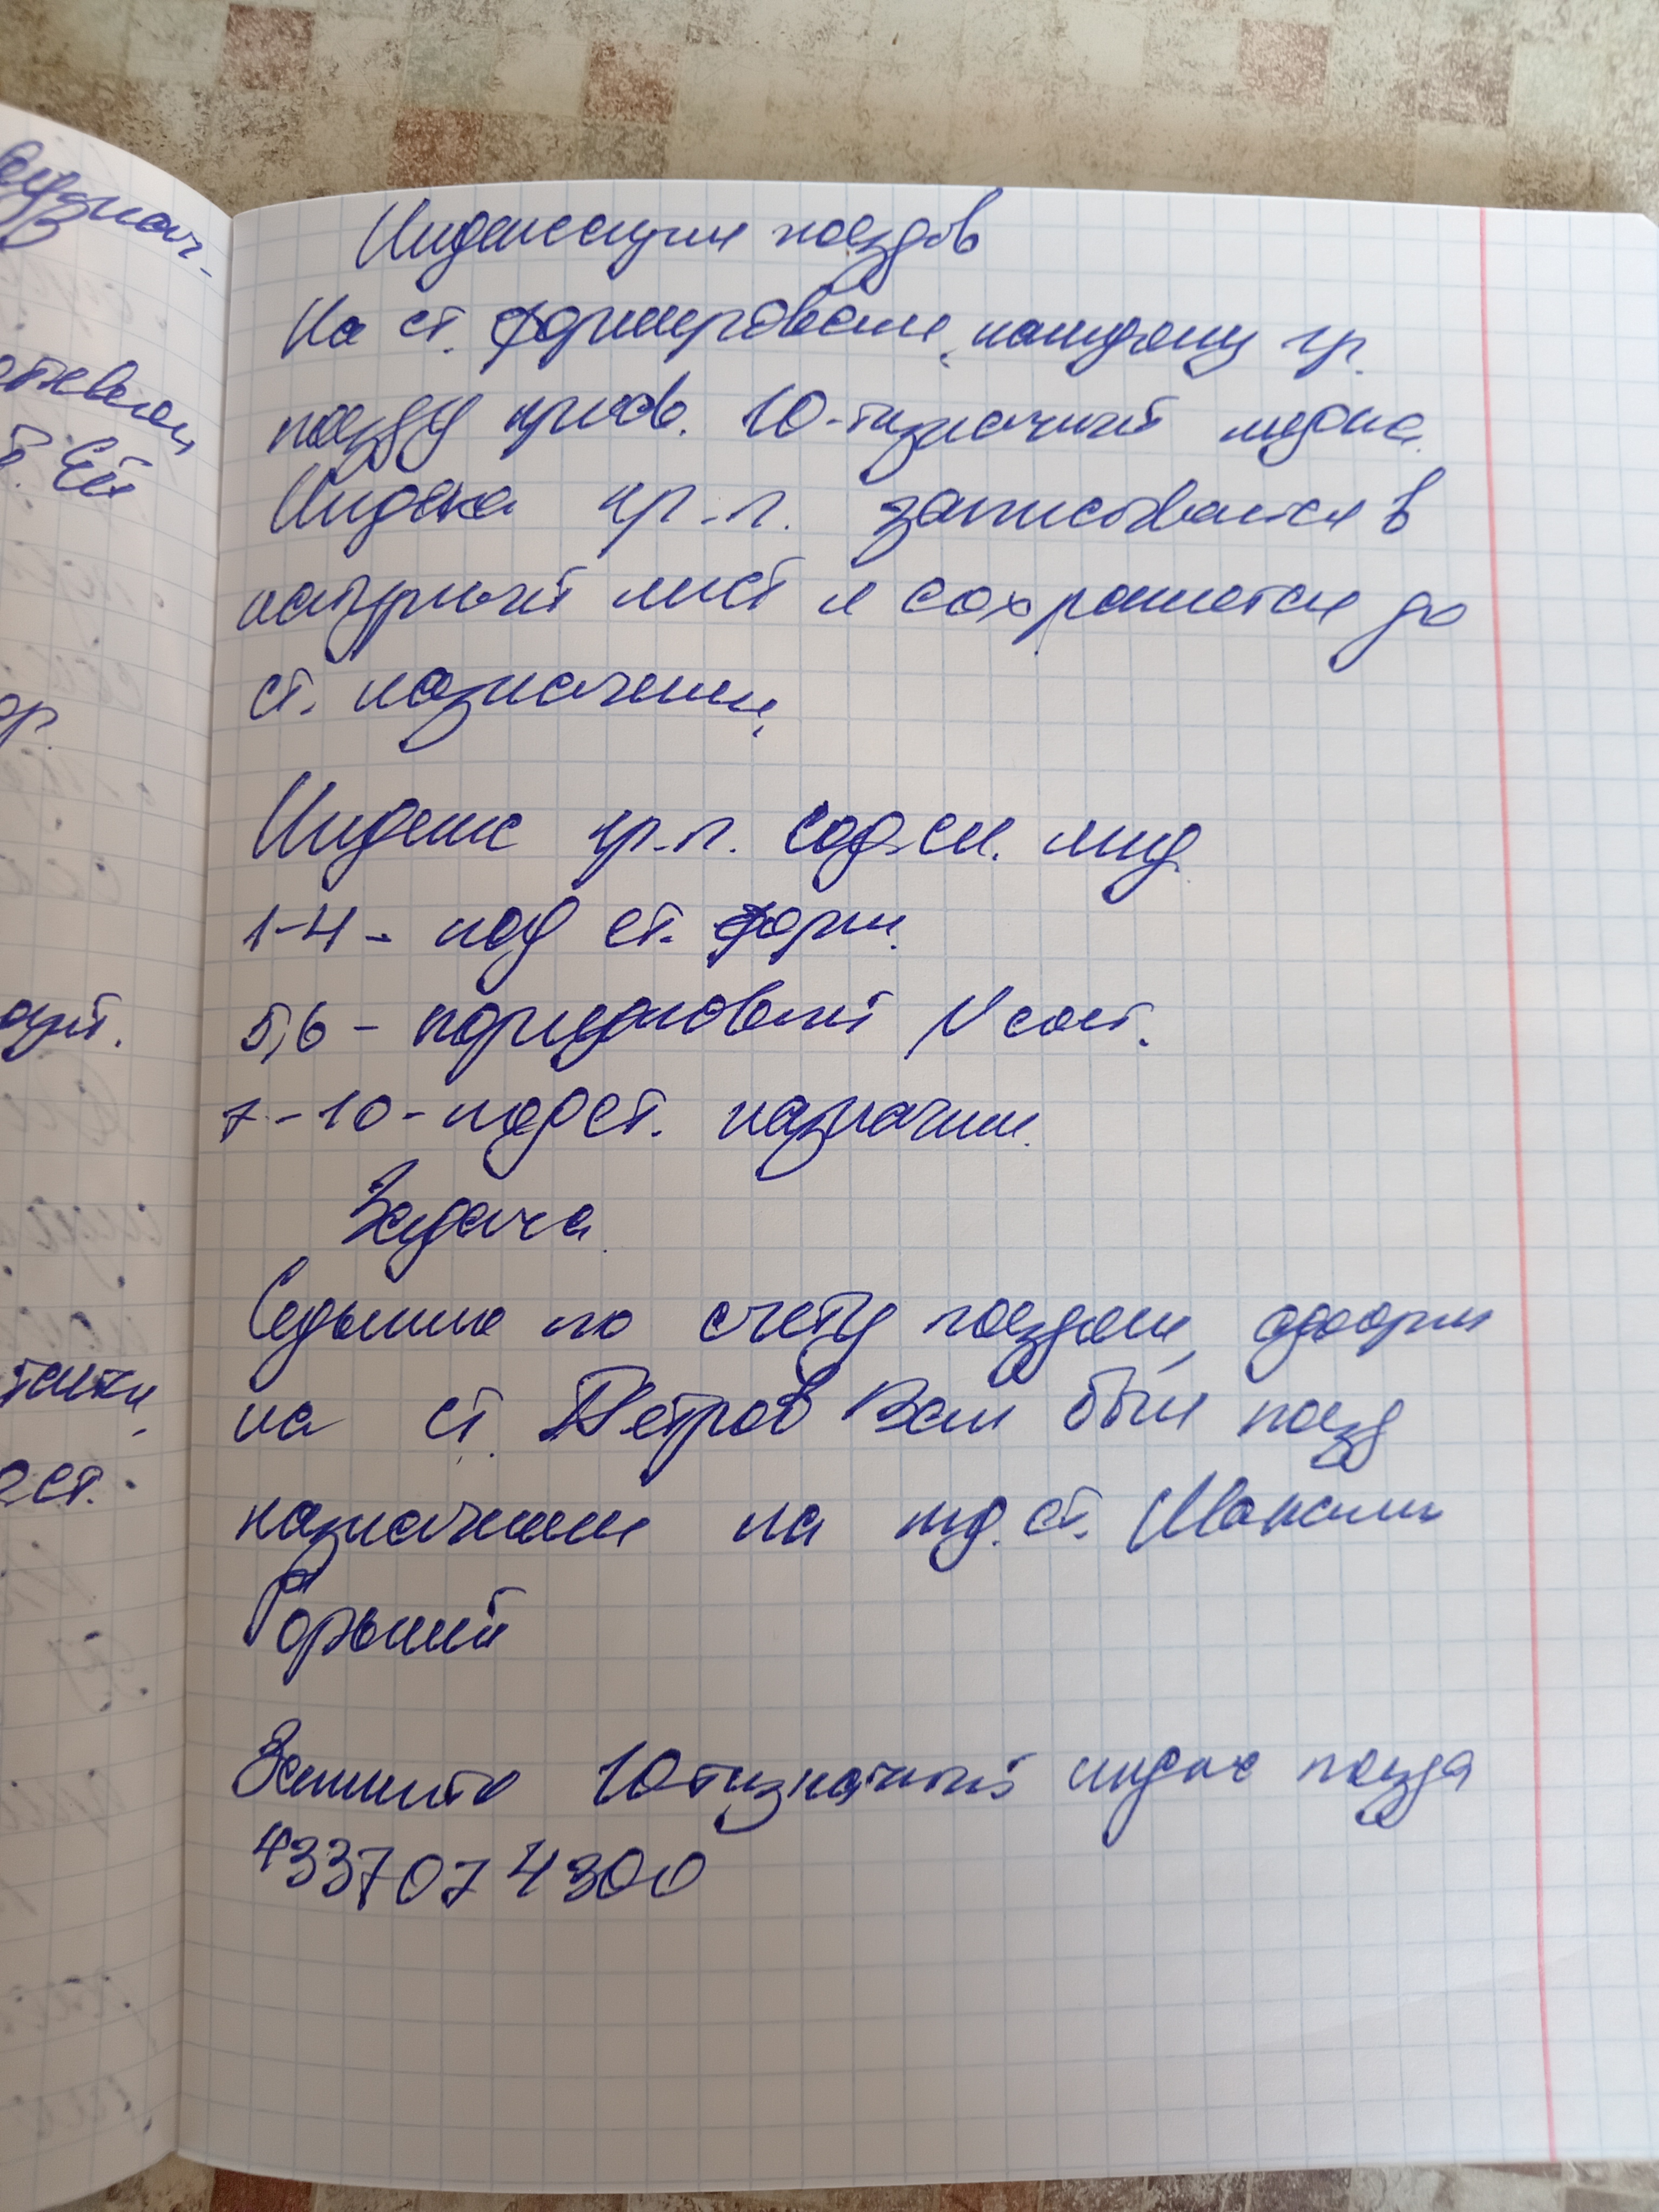 Индексация поездов
На ст. формирования, каждому гр.
поезду присв. 10-тизначный индекс.
Индекс гр. п. записывается в
натурный лист и сохраняется до
ст. назначения,
Индекс гр. п. содерж. инф.
1-4 - код ст. форм.
5,6 - порядковый N сост.
7-10 - код ст. назначения.
Задача
Седьмым по счету поездом, сформ
на ст. Петров Вал был поезд
назначением на ст. Максим
Горький
Запишите 10тизначный индекс поезда
4337 07 4300